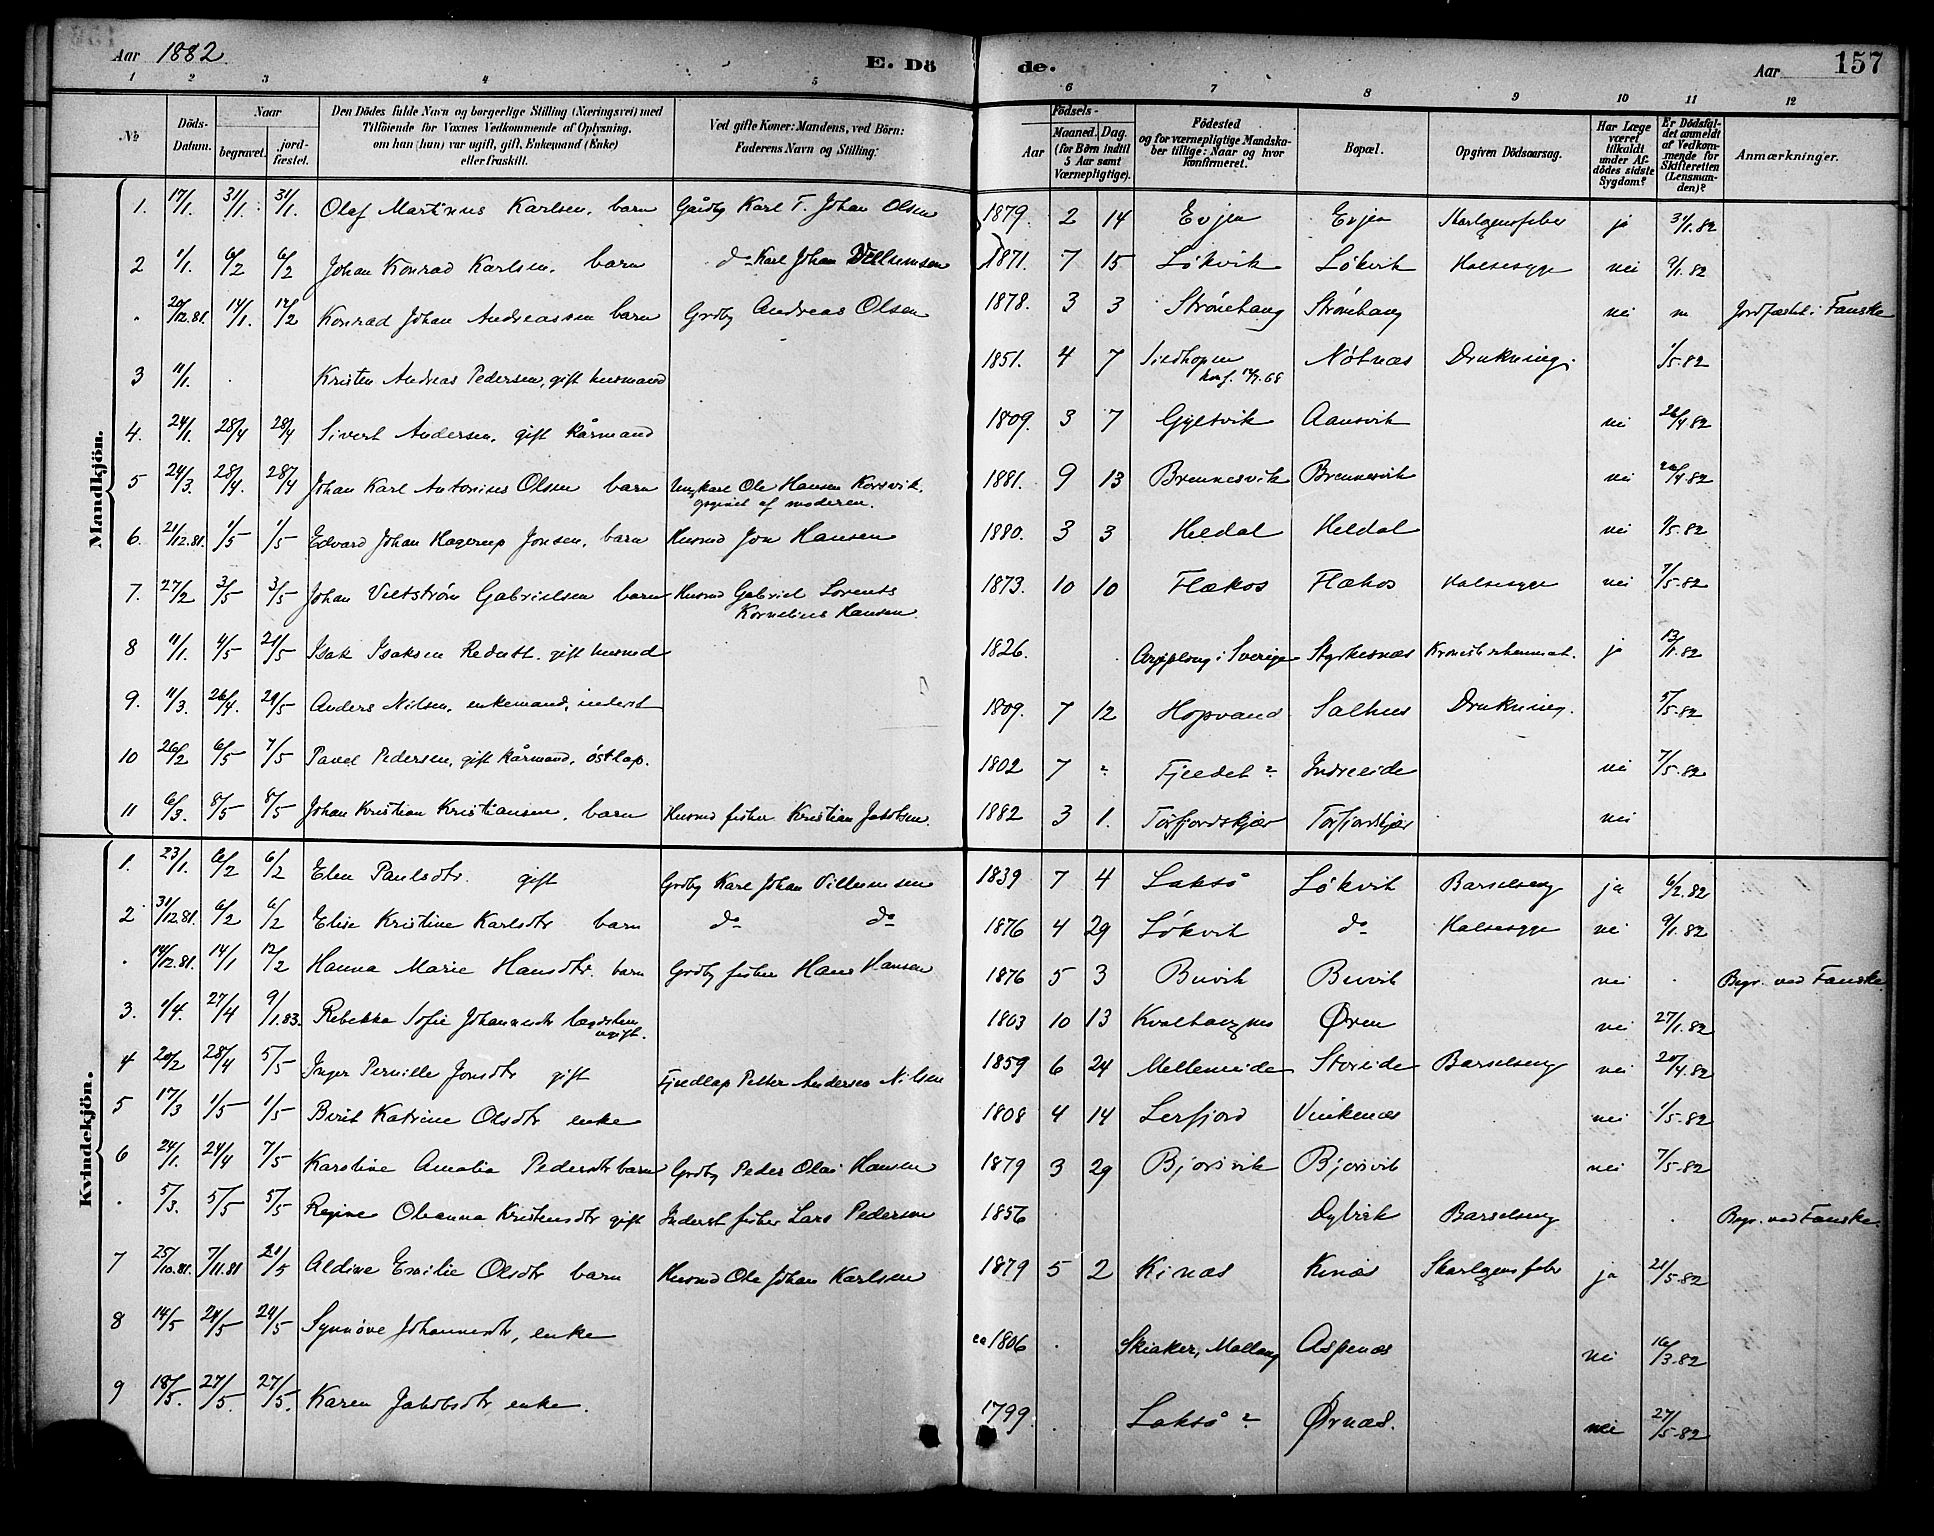 Aar 1882
E. Dö de.
Aar 157
1 2 3 4 5 6 7 8 9 10 11 12
No
Döds-Datum.
Naar
begravet.
jord-fæstet.
Den Dödes fulde Navn og borgerlige Stilling (Næringsvei) med
Tilföiende for Voxnes Vedkommende af Oplysning,
om han (hun) var ugift, gift, Enkemand (Enke)
eller fraskilt.
Ved gifte Koner: Mandens, ved Börn:
Faderens Navn og Stilling:
Födsels-
Aar
Maaned. Dag.
(for Börn indtil
5 Aar samt
Værnepligtige).
Födested
og for værnepligtige Mandska-
ber tillige: Naar og hvor
konfirmeret.
Bopæl.
Opgiven Dödsaarsag.
Har Læge
været
tilkaldt
under Af-
dödes sidste
Sygdom?
Er Dödsfal-
det anmeldt
af Vedkom-
mende for
Skifteretten
(Lensman-
den)?
Anmærkninger.
Mandkjön.
1. 17/1. 31/1. 31/1. Olaf Martinus Karlsen, barn Gårdbg Karl T. Johan Olsen 1879. 2 14 Evjen Evjen Skarlagensfeber ja 31/1.82
2 1/1. 6/2 6/2 Johan Konrad Karlsen, barn do Karl Johan Villumsen 1871. 7 15 Løkvik Løkvik Halsesyge nei 9/1.82
" 20/12.81. 14/1. 12/2 Konrad Johan Andreassen barn Grdbg Andreas Olsen 1878. 3 3 Strønehaug Strønehaug nei Jordfæstet i Fauske
3 11/1. Kristen Andreas Pedersen, gift husmand 1851. 4 7 Sildhopen Nøtnæs Drukning. 1/5.82
konf. 12/7.68
4. 24/1. 28/4 28/4 Sivert Andersen, gift kårmand 1809. 3 7 Gyltvik Aansvik nei 26/4.82
5 24/3. 28/4. 28/4 Johan Karl Antonius Olsen barn Ungkarl Ole Hansen Korsvik, 1881. 9 13 Brennesvik Brennesvik nei 26/4.82
opgivet af moderen.
6. 21/12.81. 1/5 1/5 Edvard Johan Hagerup Jonsen, barn Husmd Jon Hansen 1880. 3 3 Heldal Heldal nei 1/5.82
7. 27/2 3/5 3/5 Johan Veltstrøm Gabrielsen barn Husmd Gabriel Lorents 1873. 10 10 Flækos Flækos Halsesyge nei 7/5.82
Kornelius Hansen.
8 11/1. 4/5 21/5 Isak Isaksen gift husmd 1826. Arjeploug i Sverige Styrkesnæs ja 13/1.82
9. 11/3. 26/4. 29/5 Anders Nilsen, enkemand, inderst 1809. 7 12 Hopvand Salhus Drukning. 5/5.82
10 26/2 6/5 7/5 Pavel Pedersen, gift kårmand, østlap. 1802 7 ? Fjeldet ? Indreeide nei 7/5.82
11 6/3. 8/5 8/5 Johan Kristian Kristiansen, barn Husmd fisher Kristian Jakobsen. 1882 3 1. Torfjordskjær Torfjordskjær nei
Kvindekjön.
1. 23/1. 6/2 6/2 Elen Paulsdtr. gift Grdbg Karl Johan Villumsen 1839 7 4 Lakså Løkvik Barselseng ja 6/2.82
2 31/12.81. 6/2 6/2 Elise Kristine Karlsdtr barn do do 1876 4 29 Løkvik do Halsesyge nei 9/1.82
" 14/12.81. 14/1 12/2 Hanna Marie Hansdtr. barn Grdbg fisher Hans Hansen 1876 5 3 Buvik Buvik nei Begr. ved Fauske.
3. 1/4. 27/4 9/1.83. Rebekka Sofie Johannesdtr lægdslem 1803 10 13 Kvalhaugnes Øren nei 27/1.82
ugift.
4 20/2 28/4 5/5 Inger Pernille Jonsdtr gift Fjeldlap Petter Andersen Nilsen 1859 6 24 Mellemeide Storeide Barselseng nei 20/4.82
5 17/3 1/5 1/5 Berit Katrine Olsdtr enke 1808 4 14 Lerfjord Vinkenæs nei 1/5.82
6 24/1. 24/4 7/5 Karoline Amalia Pedersdtr barn Grdbg Peder Olai Hansen 1879 3 29 Bjørsvik Bjørsvik nei 7/5.82
" 5/3. 5/5 5/5 Regine Oleanna Kristensdtr gift Inderst fisher Lars Pedersen 1856 Dybvik Barselseng Begr. ved Fauske.
7 25/10.81. 7/11.81 21/5 Aldine Emilie Olsdtr barn Husmd Ole Johan Karlsen 1879 5 2 Kinæs Kinæs Skarlgensfeber ja 21/5.82
8 14/5 24/5 24/5 Synnøve Johannesdtr, enke ca 1806 Skiaker, Mollaug Aspenæs nei 16/3.82
9 18/5. 27/5. 27/5. Karen Jakobsdtr, enke. 1799. Lakså ? Ørnæs. nei 27/5.82